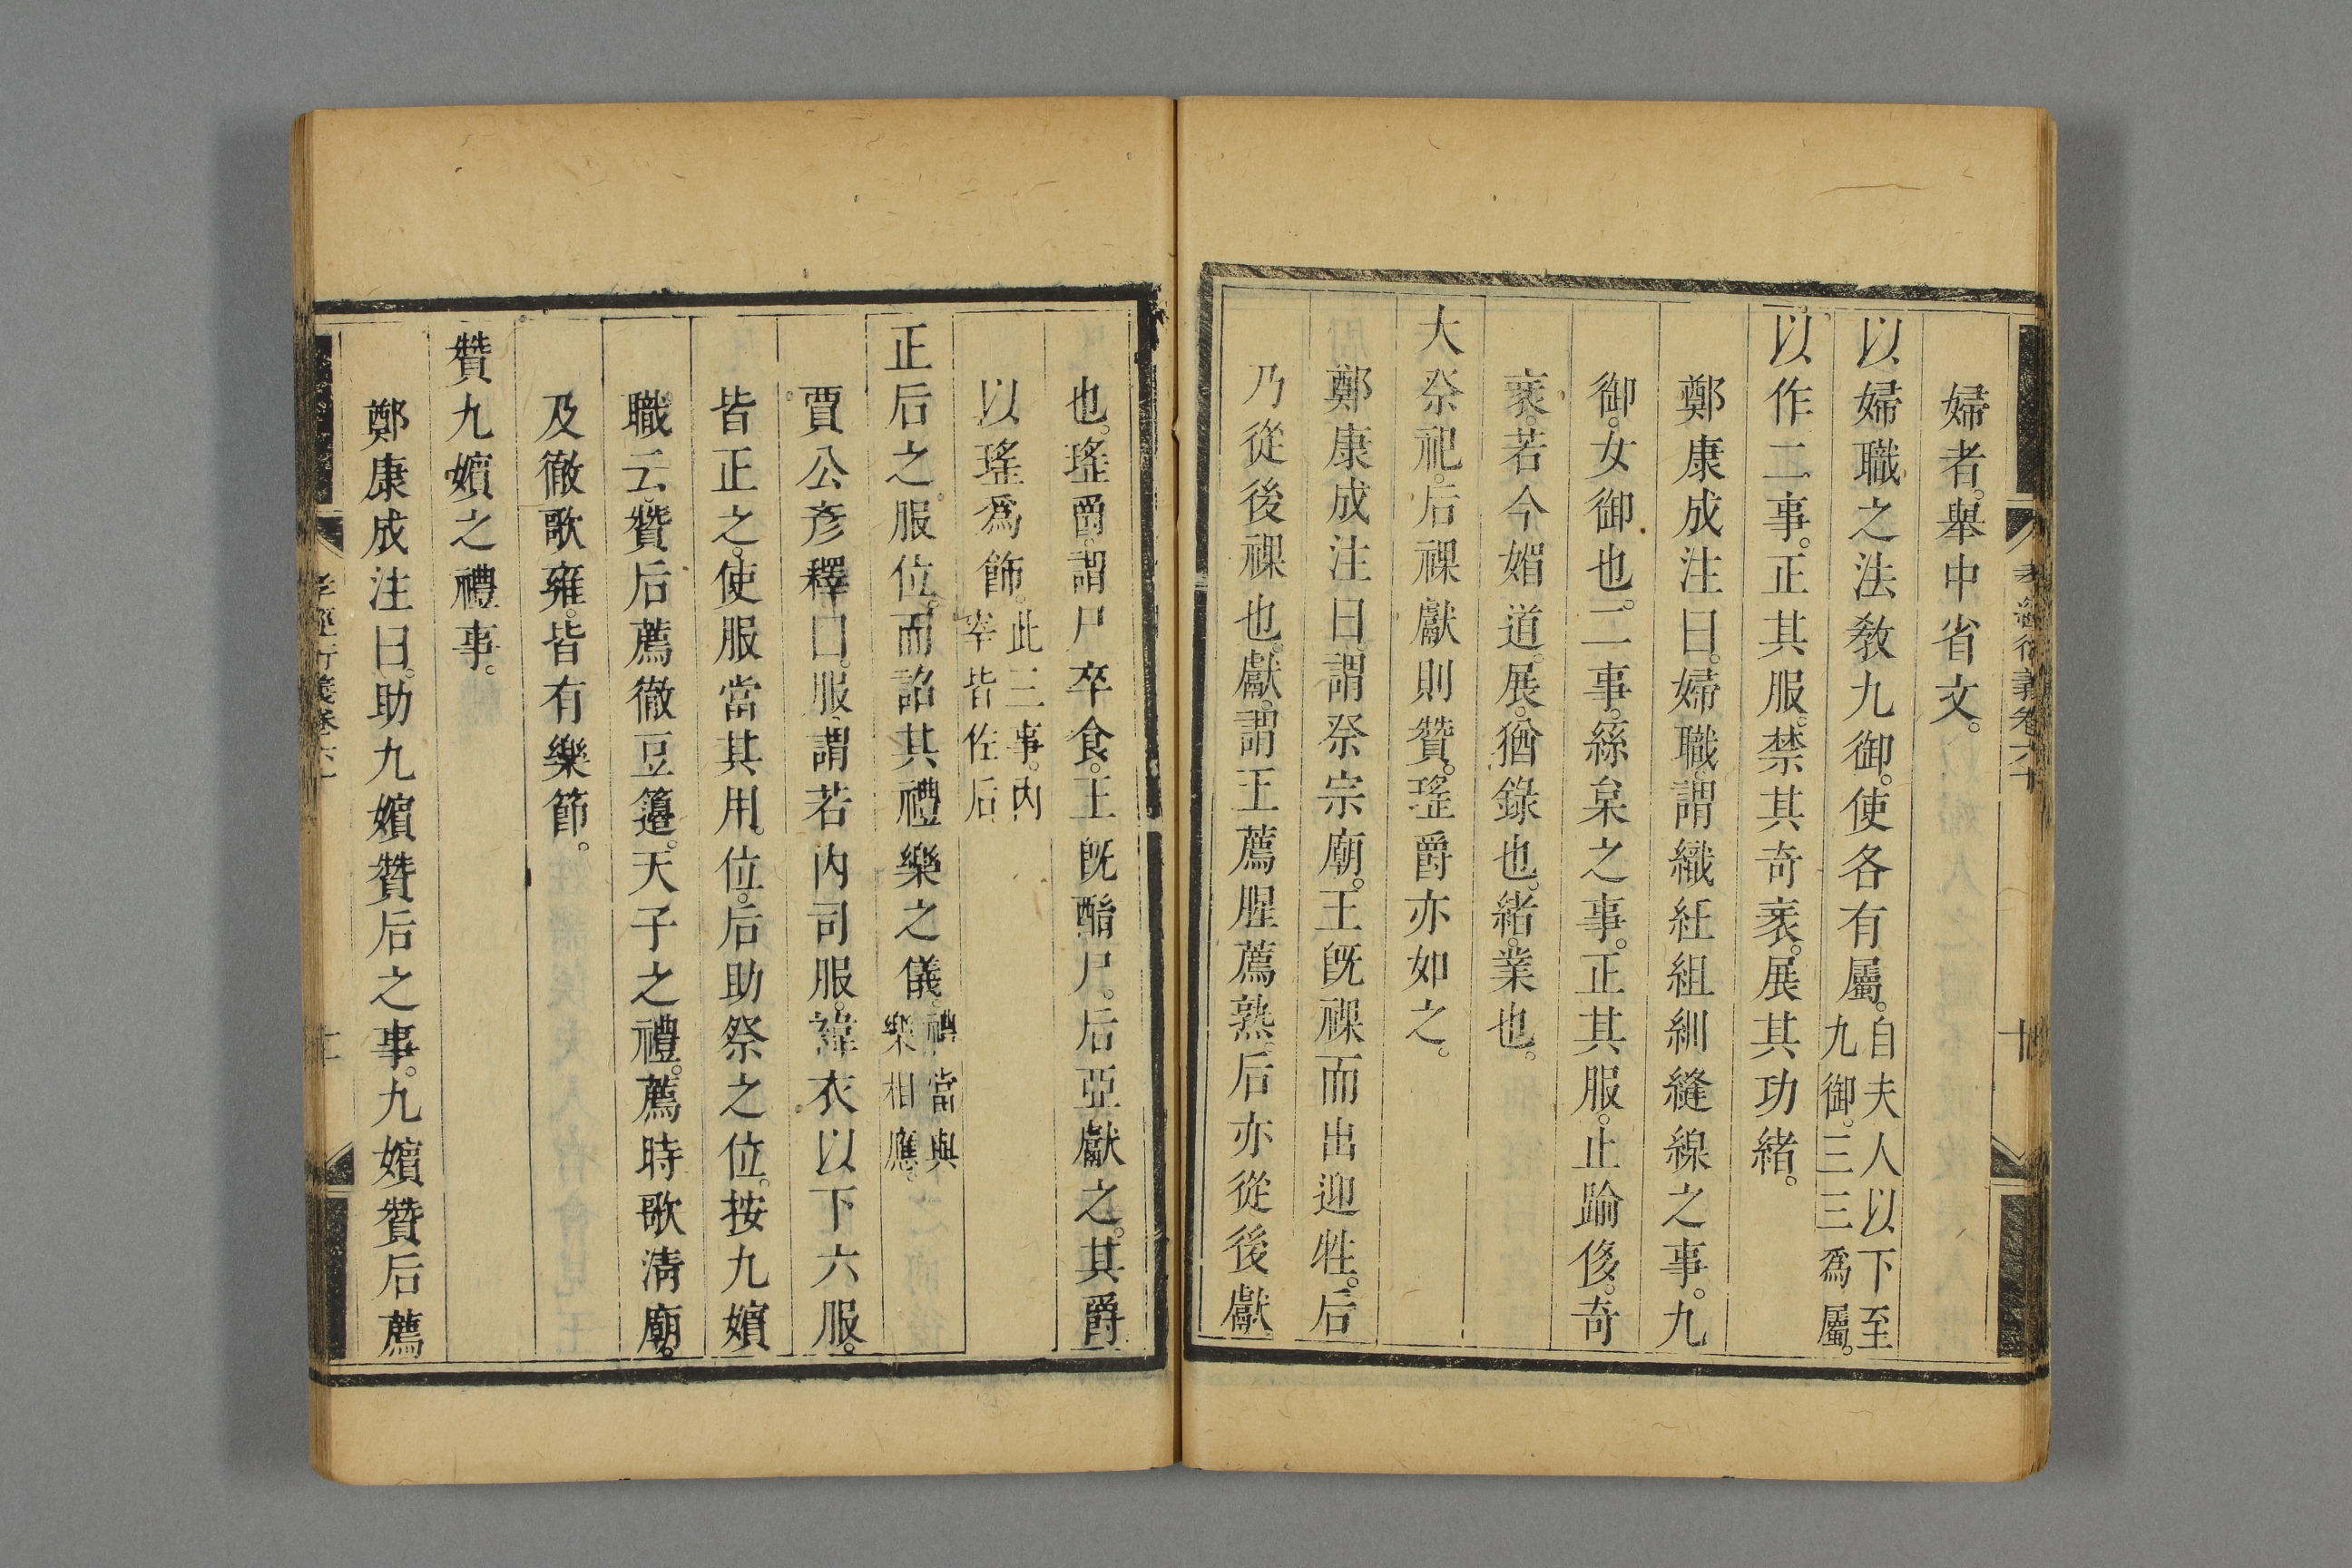 婦者。舉中省文。
以婦職之法教九御。使各有屬。自夫人以下至九御。三三爲屬。
以作二事。正其服。禁其奇衺。展其功緒。
鄭康成注曰。婦職。謂織紝組紃縫線之事。九
御。女御也。二事。絲枲之事。正其服。止踰侈。奇
衺。若今媚道。展。猶錄也。緒。業也。
大祭祀。后祼獻則贊。瑤爵亦如之。
鄭康成注曰。謂祭宗廟。王旣祼而出迎牲。后
乃從後祼也。獻。謂王薦腥薦熟。后亦從後獻
也。瑤爵。謂尸卒食。王旣酳尸。后亞獻之。其爵
以瑤爲飾。此三事。內宰皆佐后
正后之服位。而詔其禮樂之儀。禮當與樂相應。
賈公彥釋曰。服。謂若內司服。褘衣以下六服。
皆正之。使服當其用。位。后助祭之位。按九嬪
職云。贊后薦徹豆籩。天子之禮。薦時歌淸廟。
及徹歌雍。皆有樂節。
贊九嬪之禮事。
鄭康成注曰。助九嬪贊后之事。九嬪贊后薦
孝經衍義卷六十
十